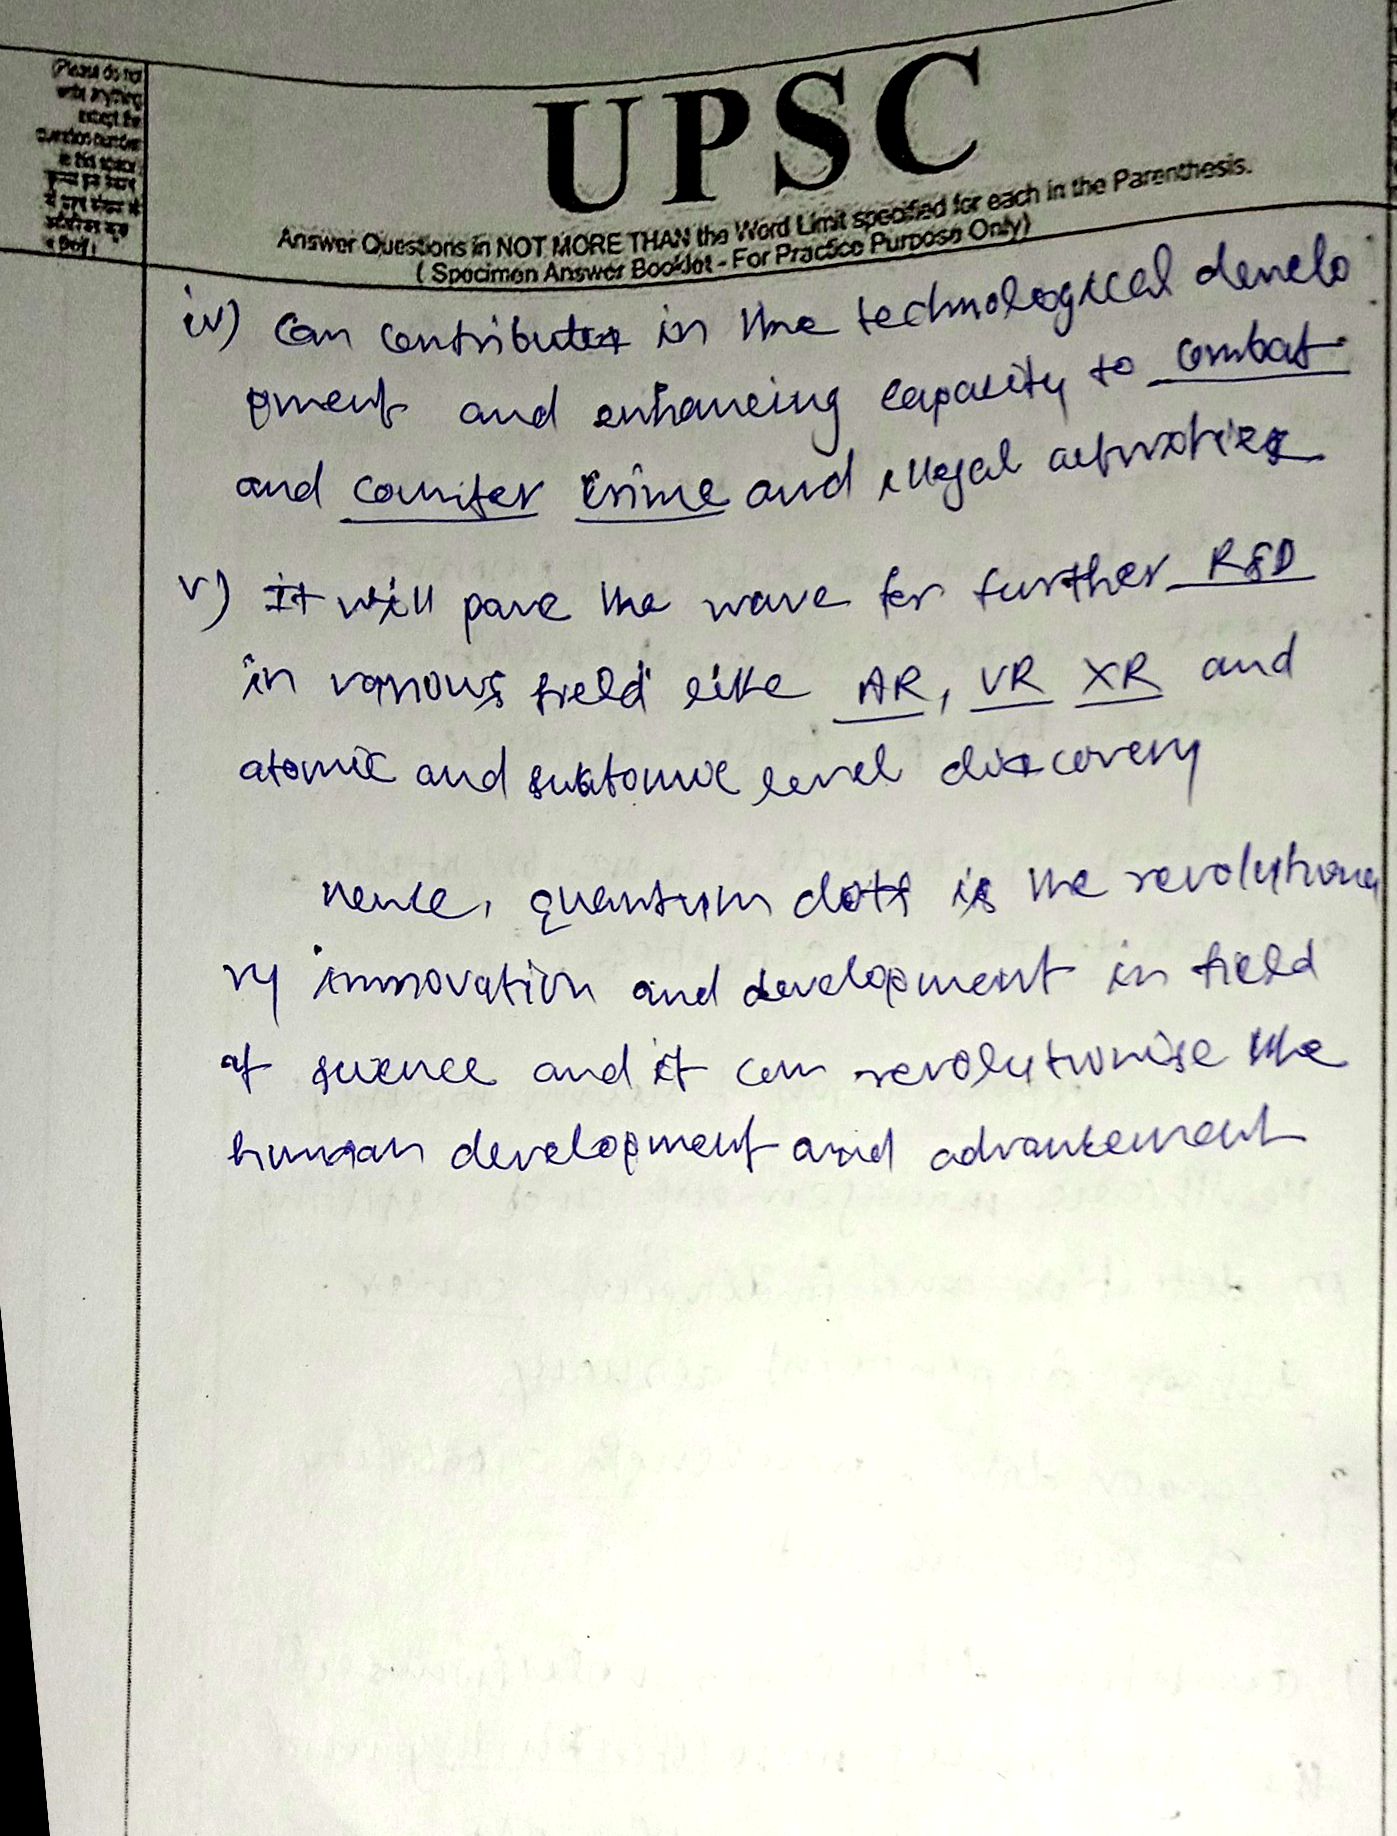 (Please do not
write anything
except the
question number
in this space)
UPSC
Answer Questions in NOT MORE THAN the Word Limit specified for each in the Parenthesis.
( Specimen Answer Booklet - For Practice Purpose Only)
iv) Can contribute in the technological develo
pment and enhancing capacity to combat
and counter crime and illegal activities
v) It will pave the wave for further R&D
in various field like AR, VR XR and
atomic and subtomic level discovery
Hence, quantum dots is the revolutiona
ry innovation and development in field
of science and it can revolutionise the
human development and advancement